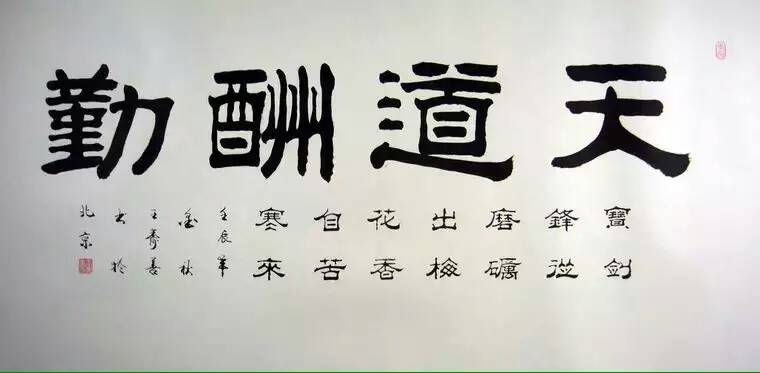 天道酬勤
寶劍
鋒從
磨礪
出梅
花香
自苦
寒來
壬辰年
金秋
王善
書於
北京